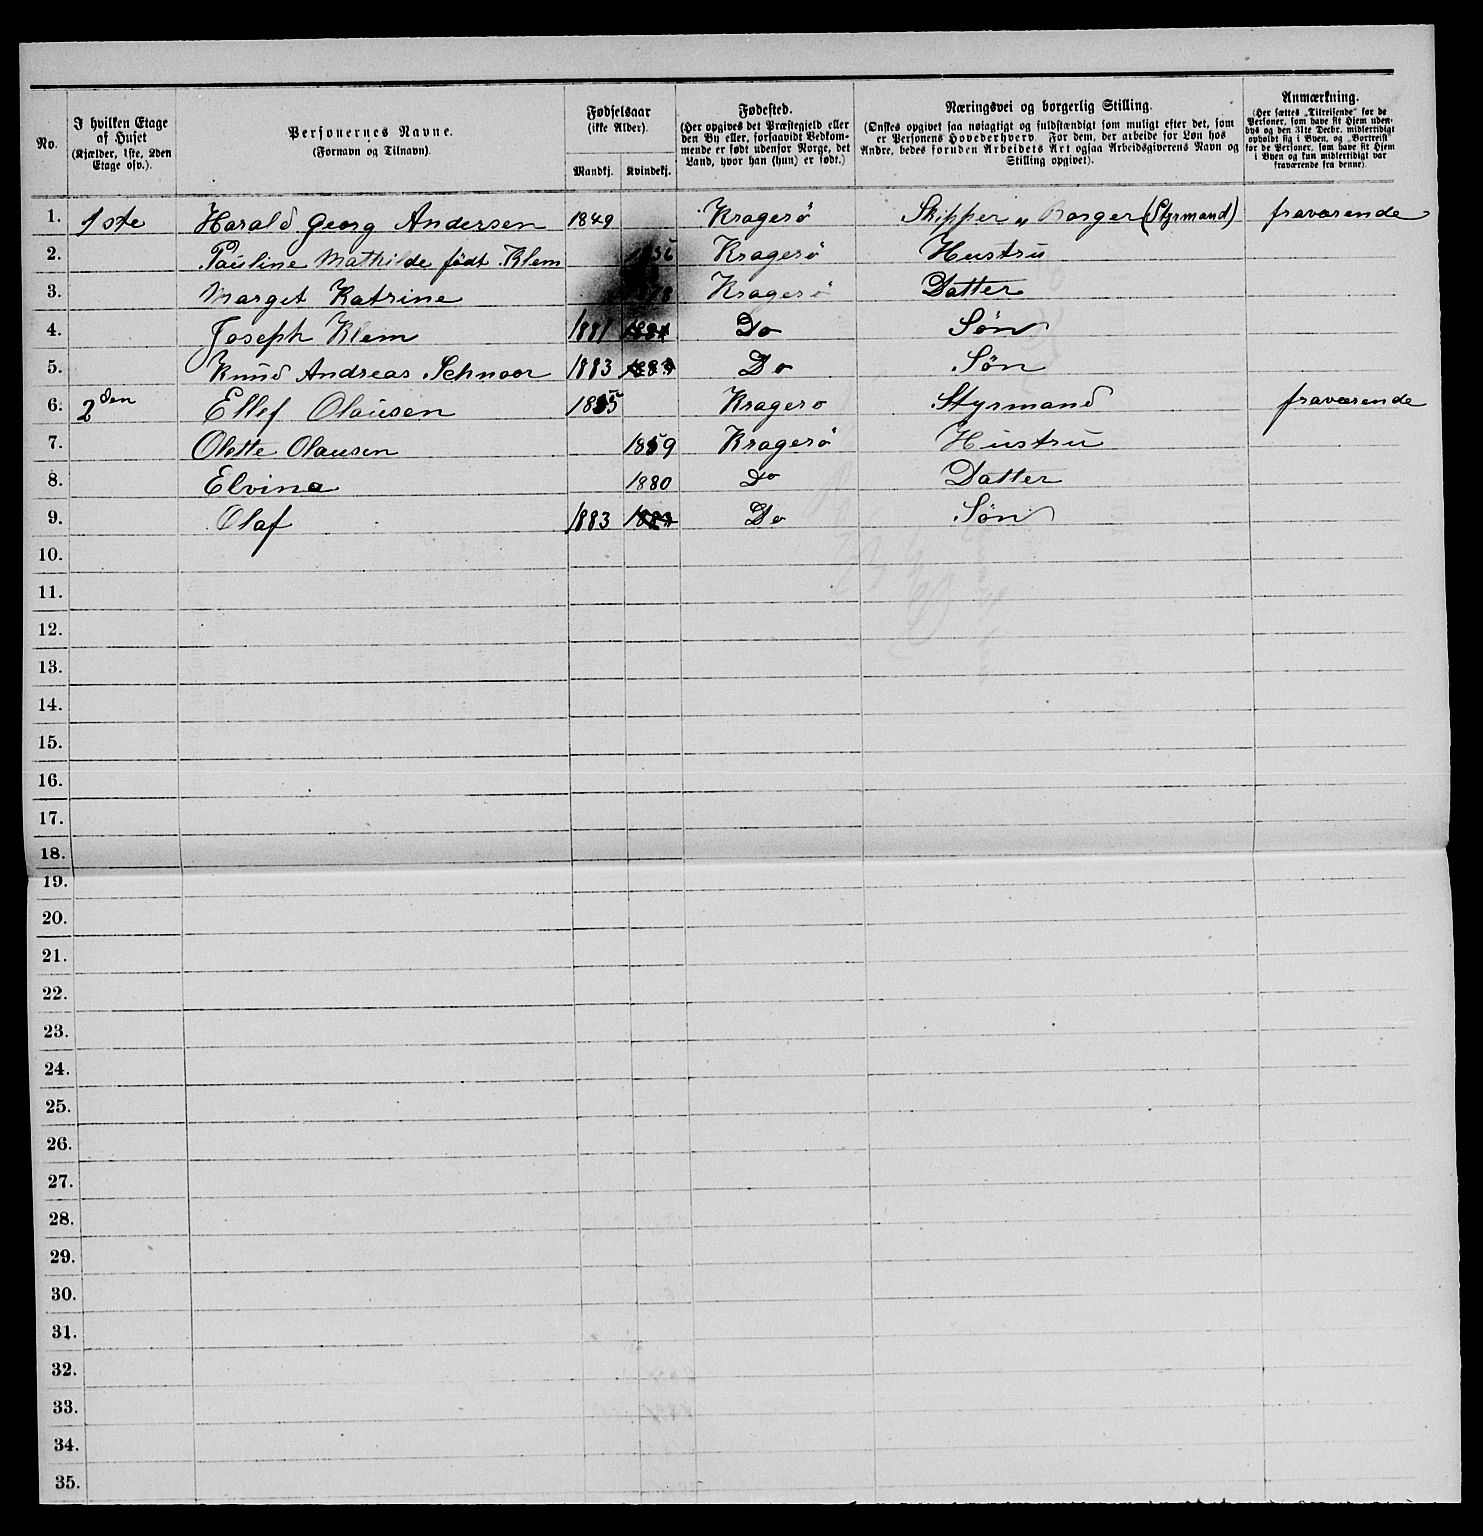 No. | I hvilken Etage af Huset (Kjælder, 1ste, 2den Etage osv.). | Personernes Navne. (Fornavn og Tilnavn). | Fødselsaar (ikke Alder). Mandkj. | Kvindekj. | Fødested. (Her opgives det Præstegjeld eller den By eller, forsaavidt Vedkommende er født udenfor Norge, det Land, hvor han (hun) er født.) | Næringsvei og borgerlig Stilling. (Ønskes opgivet saa nøiagtigt og fuldstændigt som muligt efter det, som er Personens Hovederhverv. For dem, der arbeide for Løn hos Andre, bedes foruden Arbeidets Art ogsaa Arbeidsgiverens Navn og Stilling opgivet). | Anmærkning. (Her sættes „Tilreisende“ for de Personer, som have sit Hjem udenbys og den 31te Decbr. midlertidigt opholdt sig i Byen, og „Bortreist“ for de Personer, som have sit Hjem i Byen og kun midlertidigt var fraværende fra denne).
1. 1ste Harald Georg Andersen 1849 Kragerö Skipper „ Borger (Styrmand) fraværende
2. Pauline Mathilde født Klem Kragerö Hustru
3. Marget Katrine Kragerö Datter
4. Joseph Klem 1881 1881 Do Søn
5. Knud Andreas Schnoor 1883 1883 Do Søn
6. 2den Ellef Olausen 1855 Kragero Styrmand fraværende
7. Olette Olausen 1859 Kragerö Hustru
8. Elvina 1880 Do Datter
9. Olaf 1883 1883 Do Søn
10.
11.
12.
13.
14.
15.
16.
17.
18.
19.
20.
21.
22.
23.
24.
25.
26.
27.
28.
29.
30.
31.
32.
33.
34.
35.